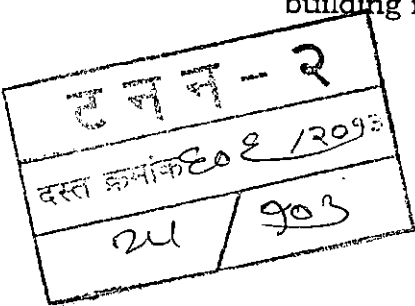 building
टनन - २
दस्त क्रमांक ६०९ /२०१३
२५ / १०३